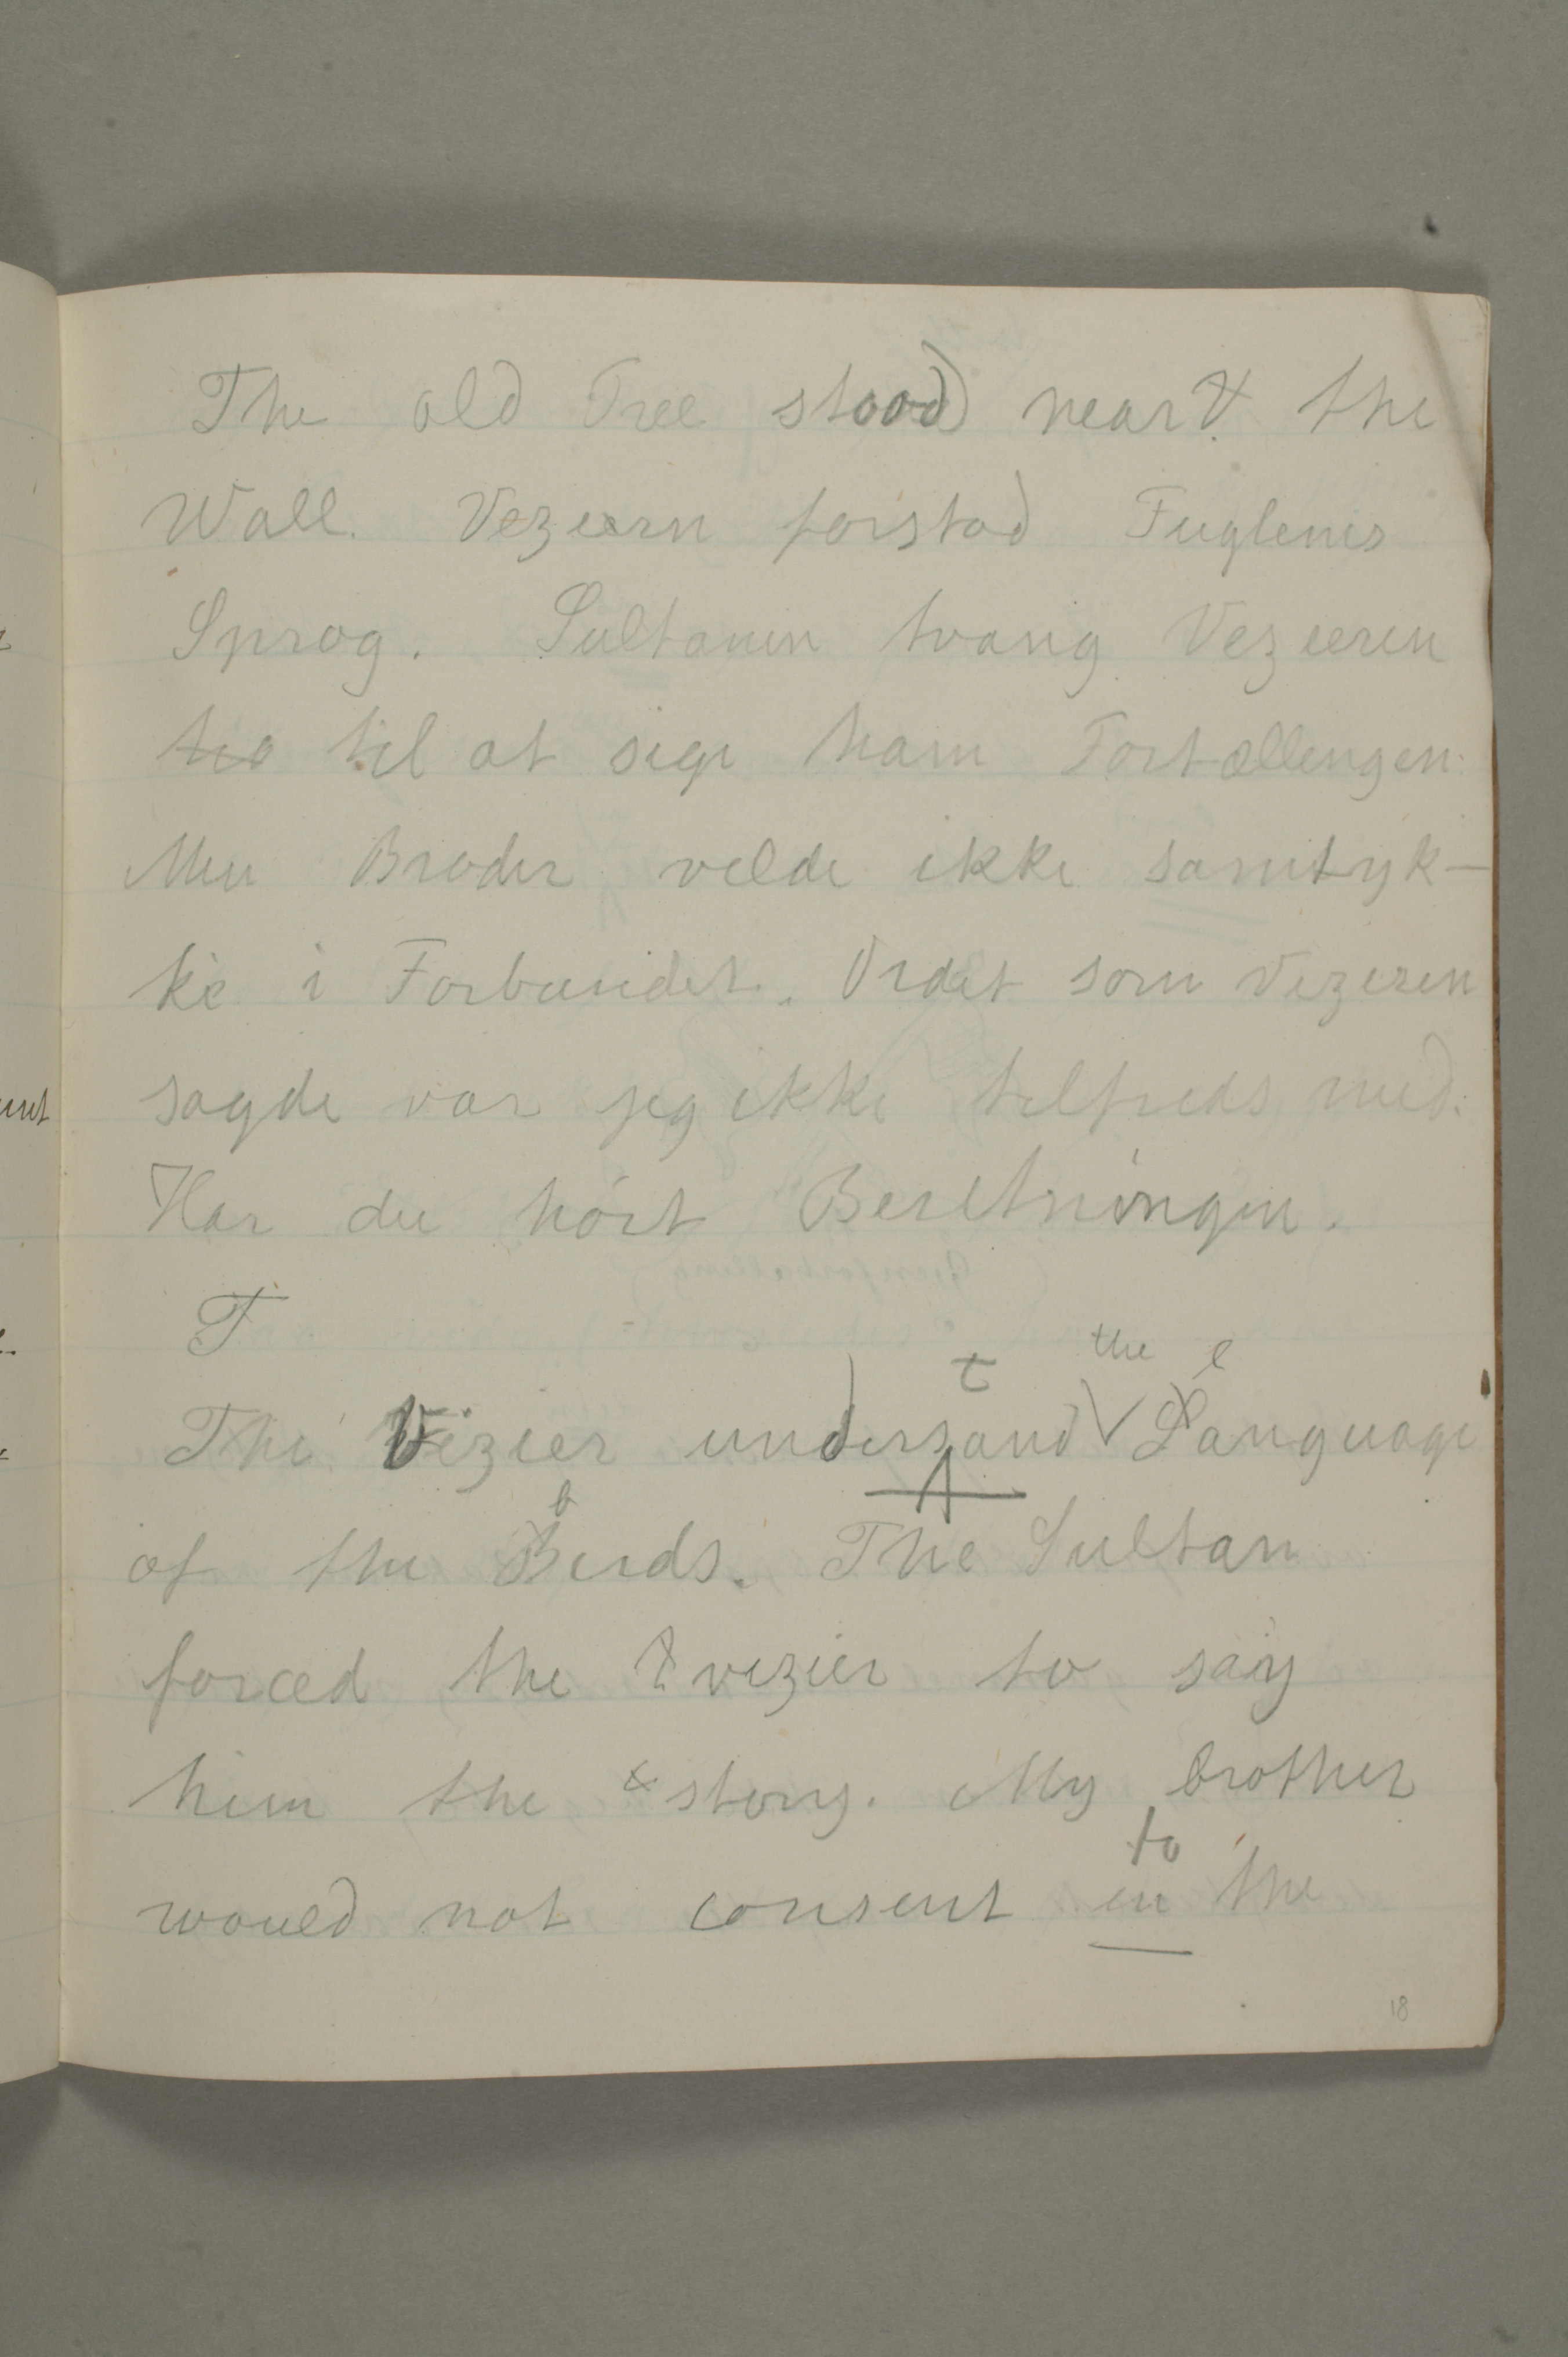 The old Tree stood near the
Wall. Vezieren forstod Fuglenes
Sprog. Sultanen tvang Vezieren
til at sige ham Fortællingen.
Min Broder vilde ikke samtyk-
ke i Forbundet. Ordet som Vezeren
sagde var jeg ikke tilfreds med.
Har du hört Beretningen.
T
the l
t
The Vizier undersand Language
b
of the Birds. The Sultan
forced the vizier to say
him the story. My brother
to
would not consent in the
18